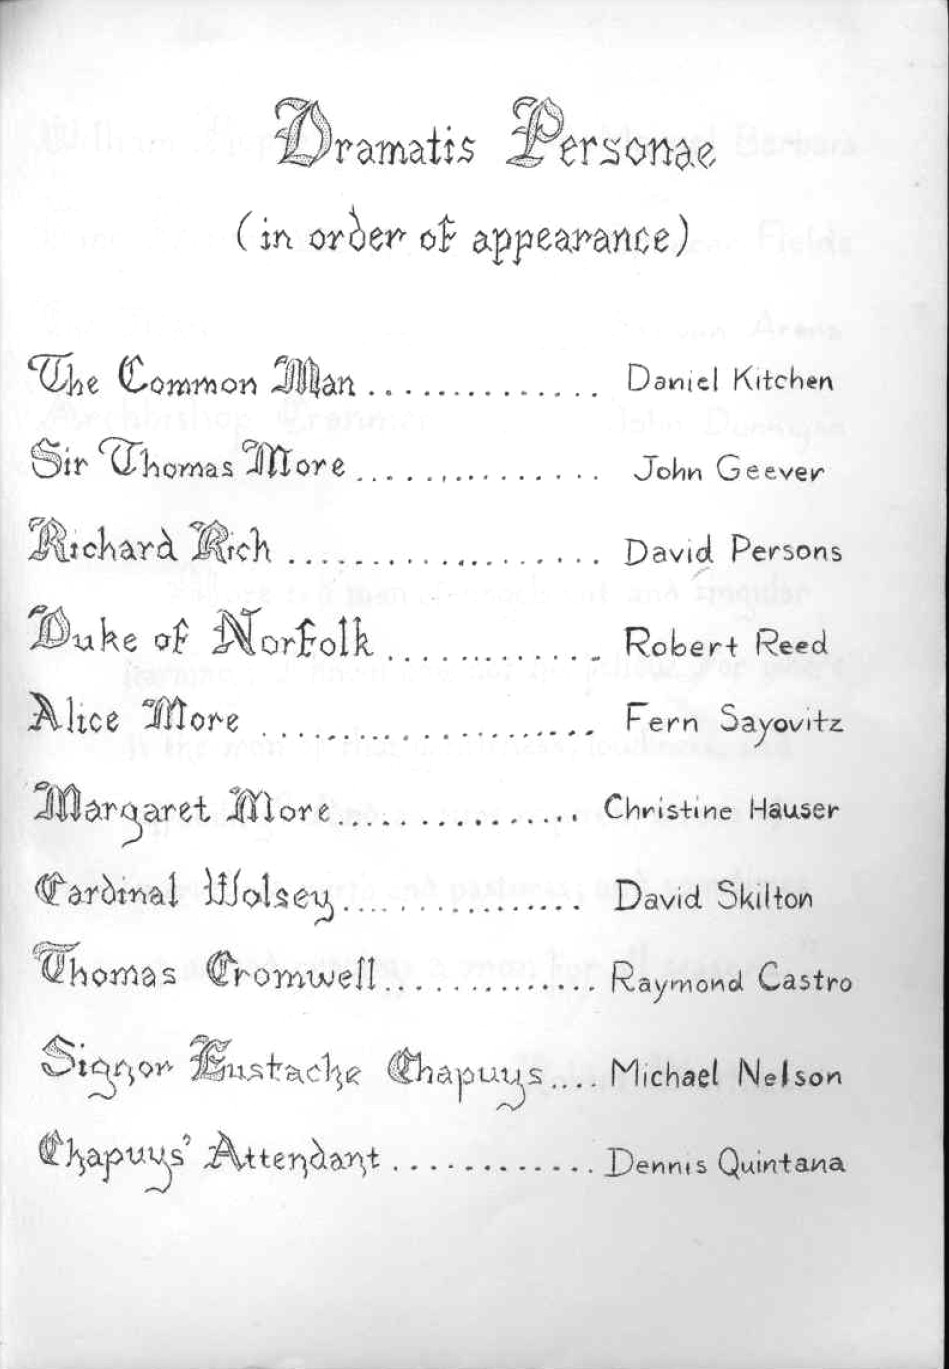 Dramatis Personae
(in order of appearance)
The Common Man .............. Daniel Kitchen
Sir Thomas More ............... John Geever
Richard Rich ..................... David Persons
Duke of Norfolk ............... Robert Reed
Alice More ..................... Fern Sayovitz
Margaret More ................ Christine Hauser
Cardinal Wolsey ................ David Skilton
Thomas Cromwell ............... Raymond Castro
Signor Eustache Chapuys .... Michael Nelson
Chapuys' Attendant ............. Dennis Quintana